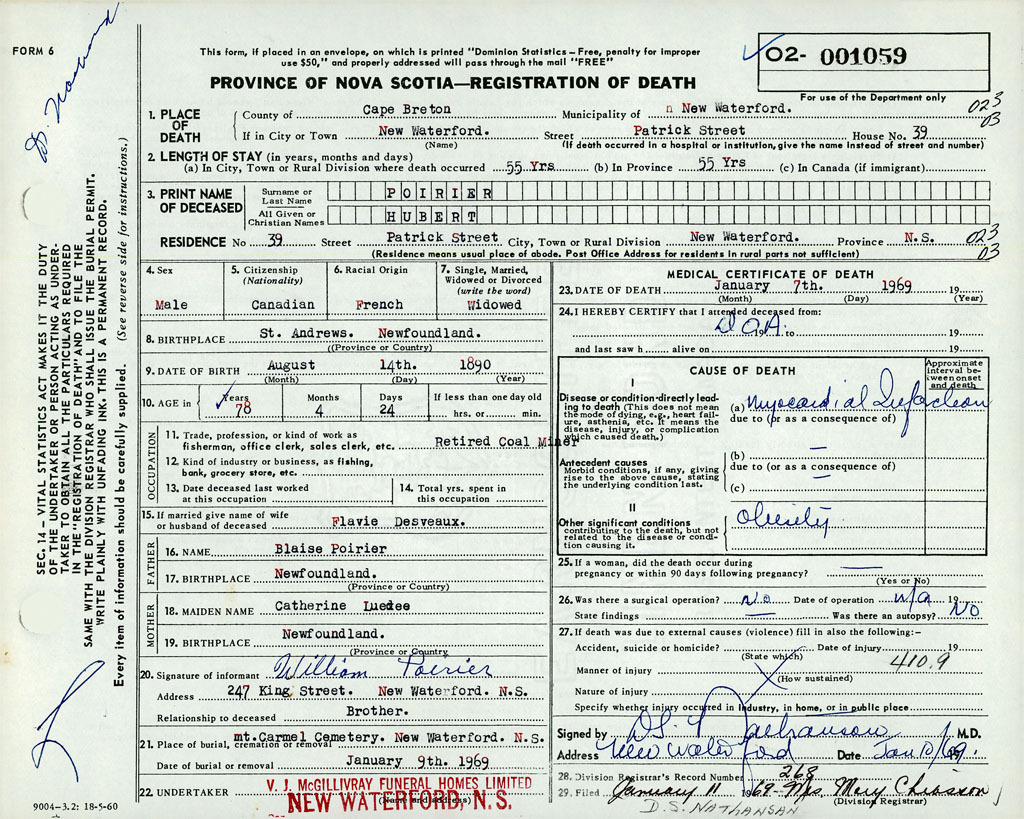 FORM 6
D. Nathanson
This form, if placed in an envelope, on which is printed "Dominion Statistics – Free, penalty for improper use $50," and properly addressed will pass through the mail "FREE"
02- 001059
For use of the Department only
PROVINCE OF NOVA SCOTIA—REGISTRATION OF DEATH
SEC. 14 – VITAL STATISTICS ACT MAKES IT THE DUTY
OF THE UNDERTAKER OR PERSON ACTING AS UNDER-
TAKER TO OBTAIN ALL THE PARTICULARS REQUIRED
IN THE "REGISTRATION OF DEATH" AND TO FILE THE
SAME WITH THE DIVISION REGISTRAR WHO SHALL ISSUE THE BURIAL PERMIT.
WRITE PLAINLY WITH UNFADING INK. THIS IS A PERMANENT RECORD.
Every item of information should be carefully supplied. (See reverse side for instructions.)
1. PLACE OF DEATH
County of Cape Breton Municipality of n New Waterford. 023 03
If in City or Town New Waterford. Street Patrick Street House No. 39
(Name) (If death occurred in a hospital or institution, give the name instead of street and number)
2. LENGTH OF STAY (in years, months and days)
(a) In City, Town or Rural Division where death occurred 55 Yrs (b) In Province 55 Yrs (c) In Canada (if immigrant)
3. PRINT NAME OF DECEASED
Surname or Last Name POIRIER
All Given or Christian Names HUBERT
RESIDENCE No 39 Street Patrick Street City, Town or Rural Division New Waterford. Province N.S. 023 03
(Residence means usual place of abode. Post Office Address for residents in rural parts not sufficient)
4. Sex
Male
5. Citizenship (Nationality)
Canadian
6. Racial Origin
French
7. Single, Married, Widowed or Divorced (write the word)
Widowed
8. BIRTHPLACE St. Andrews. Newfoundland.
((Province or Country)
9. DATE OF BIRTH August 14th. 1890
(Month) (Day) (Year)
10. AGE in
Years 78
Months 4
Days 24
If less than one day old
hrs. or min.
OCCUPATION
11. Trade, profession, or kind of work as fisherman, office clerk, sales clerk, etc. Retired Coal Miner
12. Kind of industry or business, as fishing, bank, grocery store, etc.
13. Date deceased last worked at this occupation
14. Total yrs. spent in this occupation
15. If married give name of wife or husband of deceased Flavie Desveaux.
FATHER
16. NAME Blaise Poirier
17. BIRTHPLACE Newfoundland.
(Province or Country)
MOTHER
18. MAIDEN NAME Catherine
19. BIRTHPLACE Newfoundland.
(Province or Country)
20. Signature of informant William Poirier
Address 247 King Street. New Waterford. N.S.
Relationship to deceased Brother.
21. Place of burial, cremation or removal mt.Carmel Cemetery. New Waterford. N.S.
Date of burial or removal January 9th. 1969
22. UNDERTAKER V. J. McGILLIVRAY FUNERAL HOMES LIMITED
NEW WATERFORD, N. S.
(Name and address)
9004-3.2: 18-5-60
MEDICAL CERTIFICATE OF DEATH
23. DATE OF DEATH January 7th. 1969 19
(Month) (Day) (Year)
24. I HEREBY CERTIFY that I attended deceased from:
D.O.A. to 19
and last saw h alive on 19
CAUSE OF DEATH
Approximate interval between onset and death
I
Disease or condition directly leading to death (This does not mean the mode of dying, e.g., heart failure, asthenia, etc. It means the disease, injury, or complication which caused death.)
(a) Myocardial Infarction
due to (or as a consequence of)
Antecedent causes
Morbid conditions, if any, giving rise to the above cause, stating the underlying condition last.
(b) —
due to (or as a consequence of)
(c) —
II
Other significant conditions
contributing to the death, but not related to the disease or condition causing it.
Obesity
25. If a woman, did the death occur during pregnancy or within 90 days following pregnancy? —
(Yes or No)
26. Was there a surgical operation? No Date of operation n/a 19
State findings — Was there an autopsy? No
27. If death was due to external causes (violence) fill in also the following:–
Accident, suicide or homicide? Date of injury 19
(State which)
Manner of injury 410.9
(How sustained)
Nature of injury
Specify whether injury occurred in Industry, in home, or in public place
Signed by D S Nathanson M.D.
Address New Waterford Date Jan 10/69.
28. Division Registrar's Record Number 268
29. Filed January 11 1969 Mrs. Mary Chiasson
(Division Registrar)
D.S. NATHANSAN